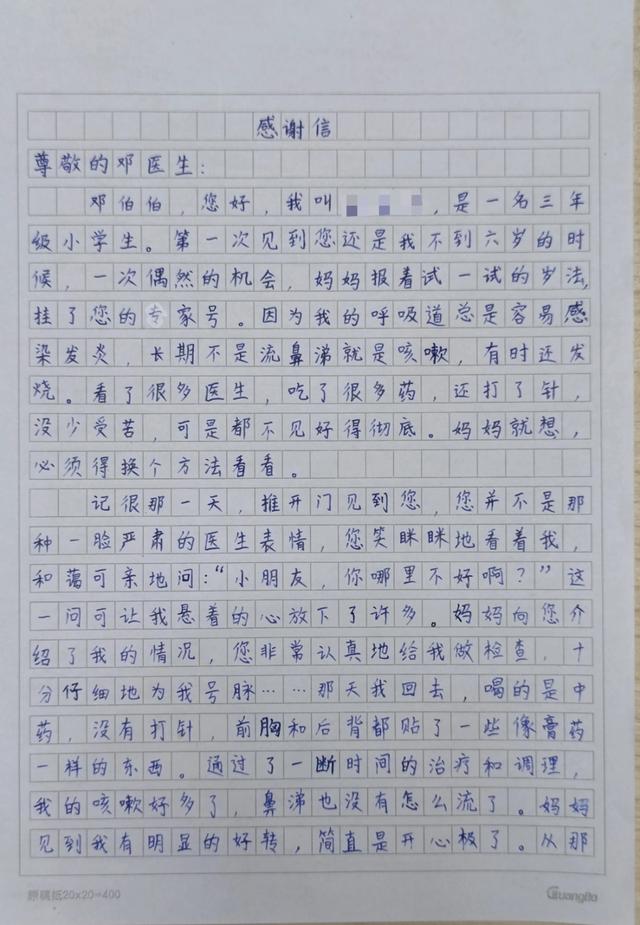 感谢信
尊敬的邓医生：
邓伯伯，您好，我叫，是一名三年
级小学生。第一次见到您还是我不到六岁的时
候，一次偶然的机会，妈妈报着试一试的岁法，
挂了您的专家号。因为我的呼吸道总是容易感
染发炎，长期不是流鼻涕就是咳嗽，有时还发
烧。看了很多医生，吃了很多药，还打了针，
没少受苦，可是都不见好得彻底。妈妈就想，
必须得换个方法看看。
记很那一天，推开门见到您，您并不是那
种一脸严肃的医生表情，您笑眯眯地看着我，
和蔼可亲地问：“小朋友，你哪里不好啊？”这
一问可让我悬着的心放下了许多。妈妈向您介
绍了我的情况，您非常认真地给我做检查，十
分仔细地为我号脉……那天我回去，喝的是中
药，没有打针，前胸和后背都贴了一些像膏药
一样的东西。通过了一断时间的治疗和调理，
我的咳嗽好多了，鼻涕也没有怎么流了。妈妈
见到我有明显的好转，简直是开心极了。从那
原稿纸20x20=400 Guangbo